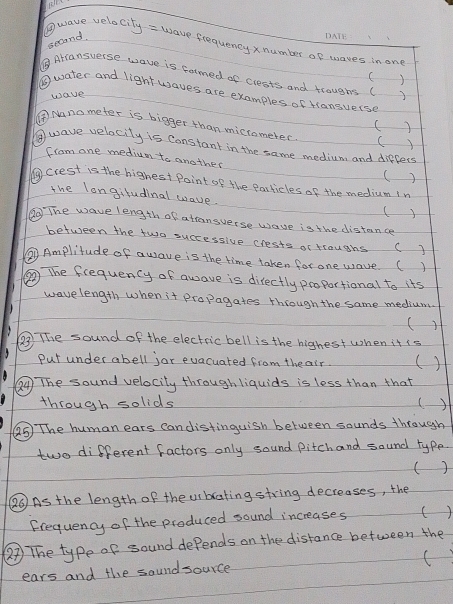 DATE
⑭ wave velocity = wave frequency x number of waves in one
second. ( )
⑮ A transverse wave is formed of crests and troughs ( )
⑯ water and light waves are examples of transverse
wave ( )
⑰ Nanometer is bigger than micrometer. ( )
⑱ wave velocity is constant in the same medium and differs
from one medium to another ( )
⑲ crest is the highest point of the particles of the medium in
the longitudinal wave. ( )
⑳ The wave length of a transverse wave is the distance
between the two successive crests or troughs ( )
㉑ Amplitude of a wave is the time taken for one wave ( )
㉒ The frequency of a wave is directly proportional to its
wavelength when it propagates through the same medium.
( )
㉓ The sound of the electric bell is the highest when it is
put under a bell jar evacuated from the air. ( )
㉔ The sound velocity through liquids is less than that
through solids ( )
㉕ The human ears can distinguish between sounds through
two different factors only sound pitch and sound type.
( )
㉖ As the length of the vibrating string decreases, the
frequency of the produced sound increases ( )
㉗ The type of sound depends on the distance between the
ears and the sound source (